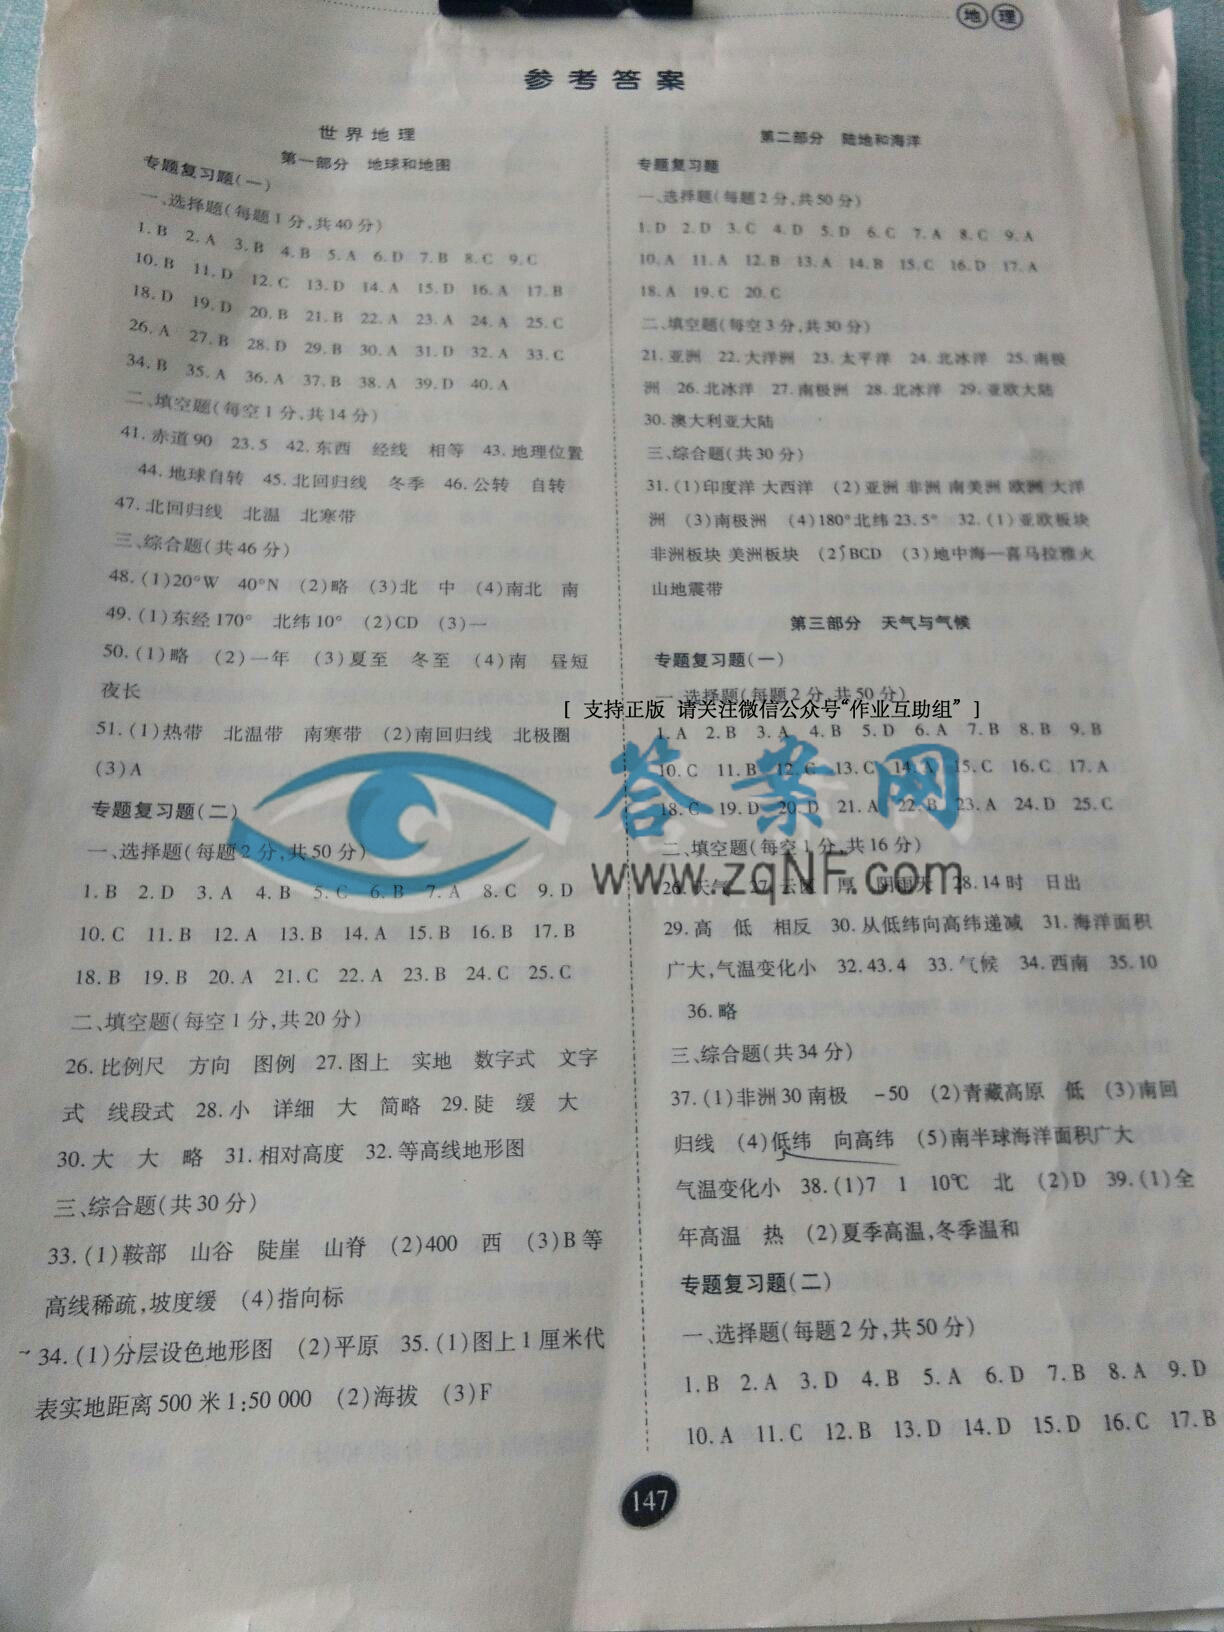 地理
参考答案
世界地理
第一部分 地球和地图
专题复习题(一)
一、选择题(每题1分,共40分)
1.B 2.A 3.B 4.B 5.A 6.D 7.B 8.C 9.C
10.B 11.D 12.C 13.D 14.A 15.D 16.A 17.B
18.D 19.D 20.B 21.B 22.A 23.A 24.A 25.C
26.A 27.B 28.D 29.B 30.A 31.D 32.A 33.C
34.B 35.A 36.A 37.B 38.A 39.D 40.A
二、填空题(每空1分,共14分)
41.赤道90 23.5 42.东西 经线 相等 43.地理位置
44.地球自转 45.北回归线 冬季 46.公转 自转
47.北回归线 北温 北寒带
三、综合题(共46分)
48.(1)20°W 40°N (2)略 (3)北 中 (4)南北 南
49.(1)东经170° 北纬10° (2)CD (3)一
50.(1)略 (2)一年 (3)夏至 冬至 (4)南 昼短
夜长
51.(1)热带 北温带 南寒带 (2)南回归线 北极圈
(3)A
专题复习题(二)
一、选择题(每题2分,共50分)
1.B 2.D 3.A 4.B 5.C 6.B 7.A 8.C 9.D
10.C 11.B 12.A 13.B 14.A 15.B 16.B 17.B
18.B 19.B 20.A 21.C 22.A 23.B 24.C 25.C
二、填空题(每空1分,共20分)
26.比例尺 方向 图例 27.图上 实地 数字式 文字
式 线段式 28.小 详细 大 简略 29.陡 缓 大
30.大 大 略 31.相对高度 32.等高线地形图
三、综合题(共30分)
33.(1)鞍部 山谷 陡崖 山脊 (2)400 西 (3)B等
高线稀疏,坡度缓 (4)指向标
34.(1)分层设色地形图 (2)平原 35.(1)图上1厘米代
表实地距离500米1:50 000 (2)海拔 (3)F
第二部分 陆地和海洋
专题复习题
一、选择题(每题2分,共50分)
1.D 2.D 3.C 4.D 5.D 6.C 7.A 8.C 9.A
10.A 11.A 12.B 13.A 14.B 15.C 16.D 17.A
18.A 19.C 20.C
二、填空题(每空3分,共30分)
21.亚洲 22.大洋洲 23.太平洋 24.北冰洋 25.南极
洲 26.北冰洋 27.南极洲 28.北冰洋 29.亚欧大陆
30.澳大利亚大陆
三、综合题(共30分)
31.(1)印度洋 大西洋 (2)亚洲 非洲 南美洲 欧洲 大洋
洲 (3)南极洲 (4)180°北纬23.5° 32.(1)亚欧板块
非洲板块 美洲板块 (2)BCD (3)地中海—喜马拉雅火
山地震带
第三部分 天气与气候
专题复习题(一)
一、选择题(每题2分,共50分)
[ 支持正版 请关注微信公众号“作业互助组” ]
1.A 2.B 3.A 4.B 5.D 6.A 7.B 8.B 9.B
10.C 11.B 12.C 13.C 14.A 15.C 16.C 17.A
18.C 19.D 20.D 21.A 22.B 23.A 24.D 25.C
答案网
二、填空题(每空1分,共16分)
www.zqNF.com
26.天气 27.云区 厚 阴雨天 28.14时 日出
29.高 低 相反 30.从低纬向高纬递减 31.海洋面积
广大,气温变化小 32.43.4 33.气候 34.西南 35.10
36.略
三、综合题(共34分)
37.(1)非洲30南极 -50 (2)青藏高原 低 (3)南回
归线 (4)低纬 向高纬 (5)南半球海洋面积广大
气温变化小 38.(1)7 1 10℃ 北 (2)D 39.(1)全
年高温 热 (2)夏季高温,冬季温和
专题复习题(二)
一、选择题(每题2分,共50分)
1.B 2.A 3.D 4.B 5.A 6.D 7.B 8.A 9.D
10.A 11.C 12.B 13.D 14.D 15.D 16.C 17.B
147